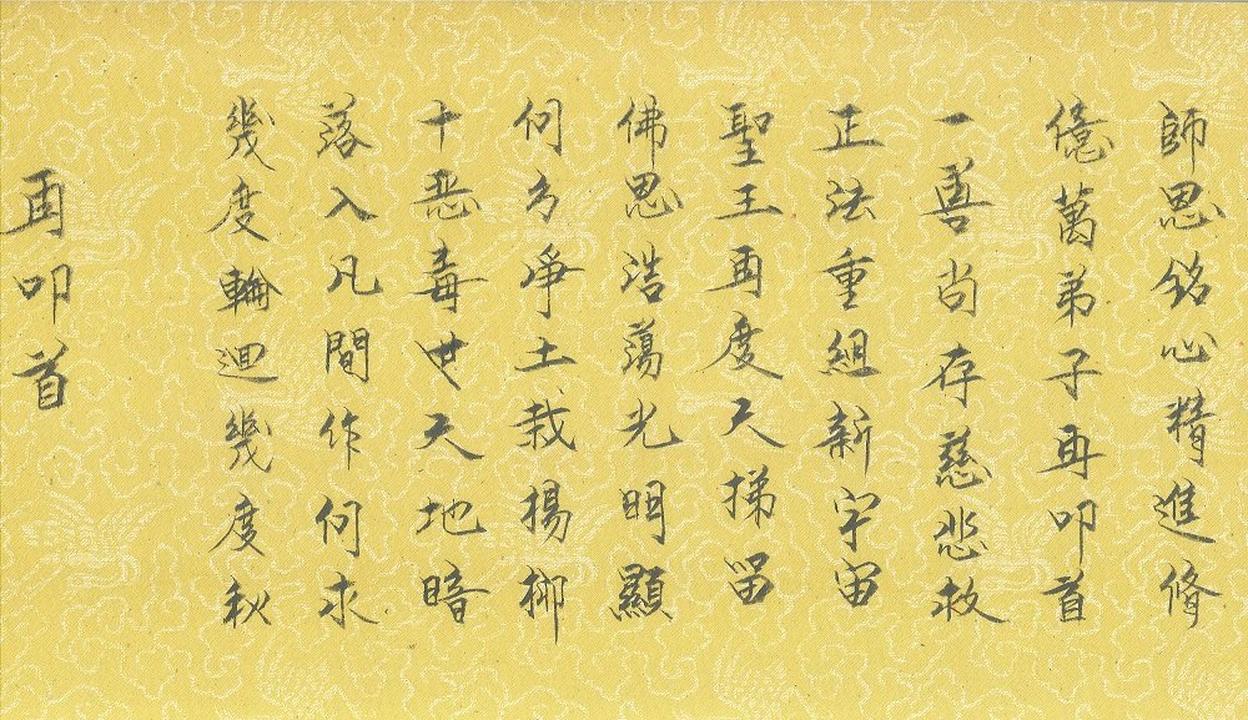 再叩首
幾度輪迴幾度秋
落入凡間作何求
十恶毒世天地暗
何方淨土栽楊柳
佛恩浩蕩光明顯
聖王再度天梯留
正法重組新宇宙
一善尚存慈悲救
億萬弟子再叩首
師恩銘心精進脩